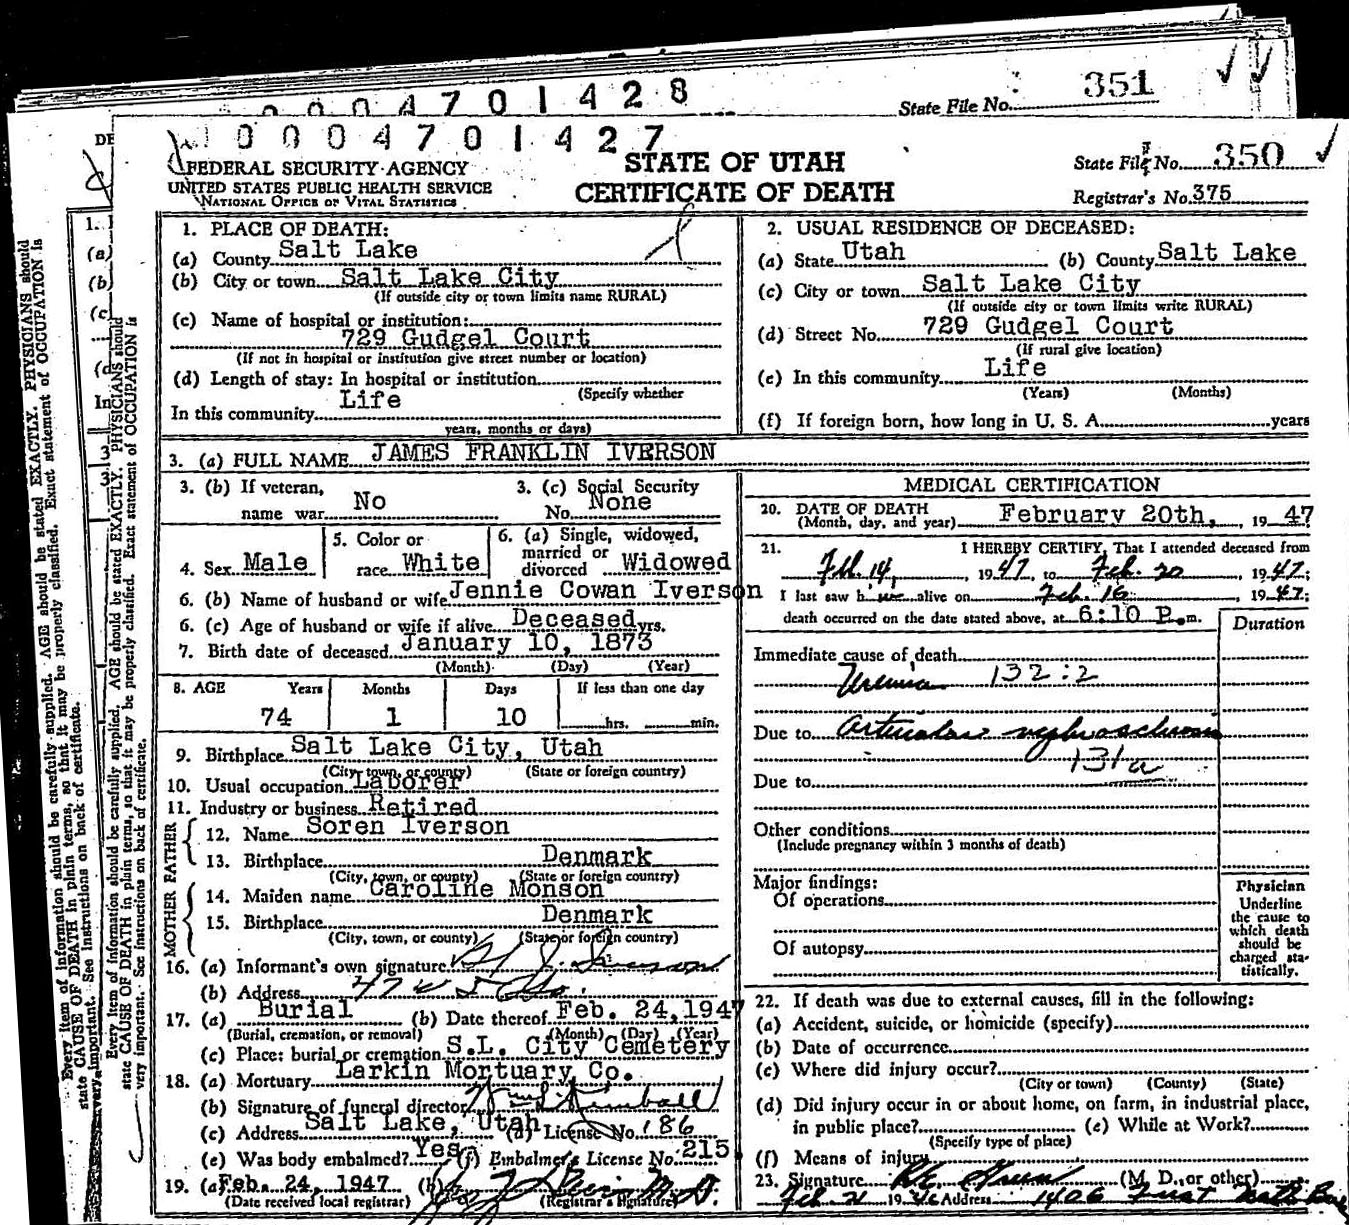 0004701428
State File No. 351
0004701427
FEDERAL SECURITY AGENCY
UNITED STATES PUBLIC HEALTH SERVICE
NATIONAL OFFICE OF VITAL STATISTICS
STATE OF UTAH
CERTIFICATE OF DEATH
State File No. 350
Registrar's No. 375
1. PLACE OF DEATH:
(a) County Salt Lake
(b) City or town Salt Lake City
(If outside city or town limits name RURAL)
(c) Name of hospital or institution:
729 Gudgel Court
(If not in hospital or institution give street number or location)
(d) Length of stay: In hospital or institution
(Specify whether
In this community Life
years, months or days)
2. USUAL RESIDENCE OF DECEASED:
(a) State Utah (b) County Salt Lake
(c) City or town Salt Lake City
(If outside city or town limits write RURAL)
(d) Street No. 729 Gudgel Court
(If rural give location)
(e) In this community Life
(Years) (Months)
(f) If foreign born, how long in U. S. A. years
3. (a) FULL NAME JAMES FRANKLIN IVERSON
3. (b) If veteran, name war No
3. (c) Social Security No. None
4. Sex Male
5. Color or race White
6. (a) Single, widowed, married or divorced Widowed
6. (b) Name of husband or wife Jennie Cowan Iverson
6. (c) Age of husband or wife if alive Deceased yrs.
7. Birth date of deceased January 10, 1873
(Month) (Day) (Year)
8. AGE Years Months Days If less than one day
74 1 10 hrs. min.
9. Birthplace Salt Lake City, Utah
(City town, or county) (State or foreign country)
10. Usual occupation Laborer
11. Industry or business Retired
FATHER
12. Name Soren Iverson
13. Birthplace Denmark
(City, town, or county) (State or foreign country)
MOTHER
14. Maiden name Caroline Monson
15. Birthplace Denmark
(City, town, or county) (State or foreign country)
16. (a) Informant's own signature Iverson
(b) Address
17. (a) Burial (b) Date thereof Feb. 24, 1947
(Burial, cremation, or removal) (Month) (Day) (Year)
(c) Place: burial or cremation S.L. City Cemetery
18. (a) Mortuary Larkin Mortuary Co.
(b) Signature of funeral director Kimball
(c) Address Salt Lake, Utah (d) License No. 186
(e) Was body embalmed? Yes (f) Embalmer's License No. 215
19. (a) Feb. 24, 1947 (b)
(Date received local registrar) (Registrar's signature)
MEDICAL CERTIFICATION
20. DATE OF DEATH
(Month, day, and year) February 20th, 1947
21. I HEREBY CERTIFY, That I attended deceased from
Feb. 14, 1947, to Feb. 20, 1947;
I last saw him alive on Feb. 16, 1947;
death occurred on the date stated above, at 6:10 P. m.
Duration
Immediate cause of death
Uremia 132:2
Due to nephrosclerosis
131a
Due to
Other conditions
(Include pregnancy within 3 months of death)
Major findings:
Of operations
Of autopsy
Physician
Underline
the cause to
which death
should be
charged sta-
tistically.
22. If death was due to external causes, fill in the following:
(a) Accident, suicide, or homicide (specify)
(b) Date of occurrence
(c) Where did injury occur?
(City or town) (County) (State)
(d) Did injury occur in or about home, on farm, in industrial place,
in public place? (e) While at Work?
(Specify type of place)
(f) Means of injury
23. Signature (M. D., or other)
Feb. 21 19 Address 1406
Every item of information should be carefully supplied. AGE should be stated EXACTLY. PHYSICIANS should
state CAUSE OF DEATH in plain terms, so that it may be properly classified. Exact statement of OCCUPATION is
very important. See instructions on back of certificate.
Every item of information should be carefully supplied. AGE should be stated EXACTLY. PHYSICIANS should
state CAUSE OF DEATH in plain terms, so that it may be properly classified. Exact statement of OCCUPATION is
very important. See instructions on back of certificate.